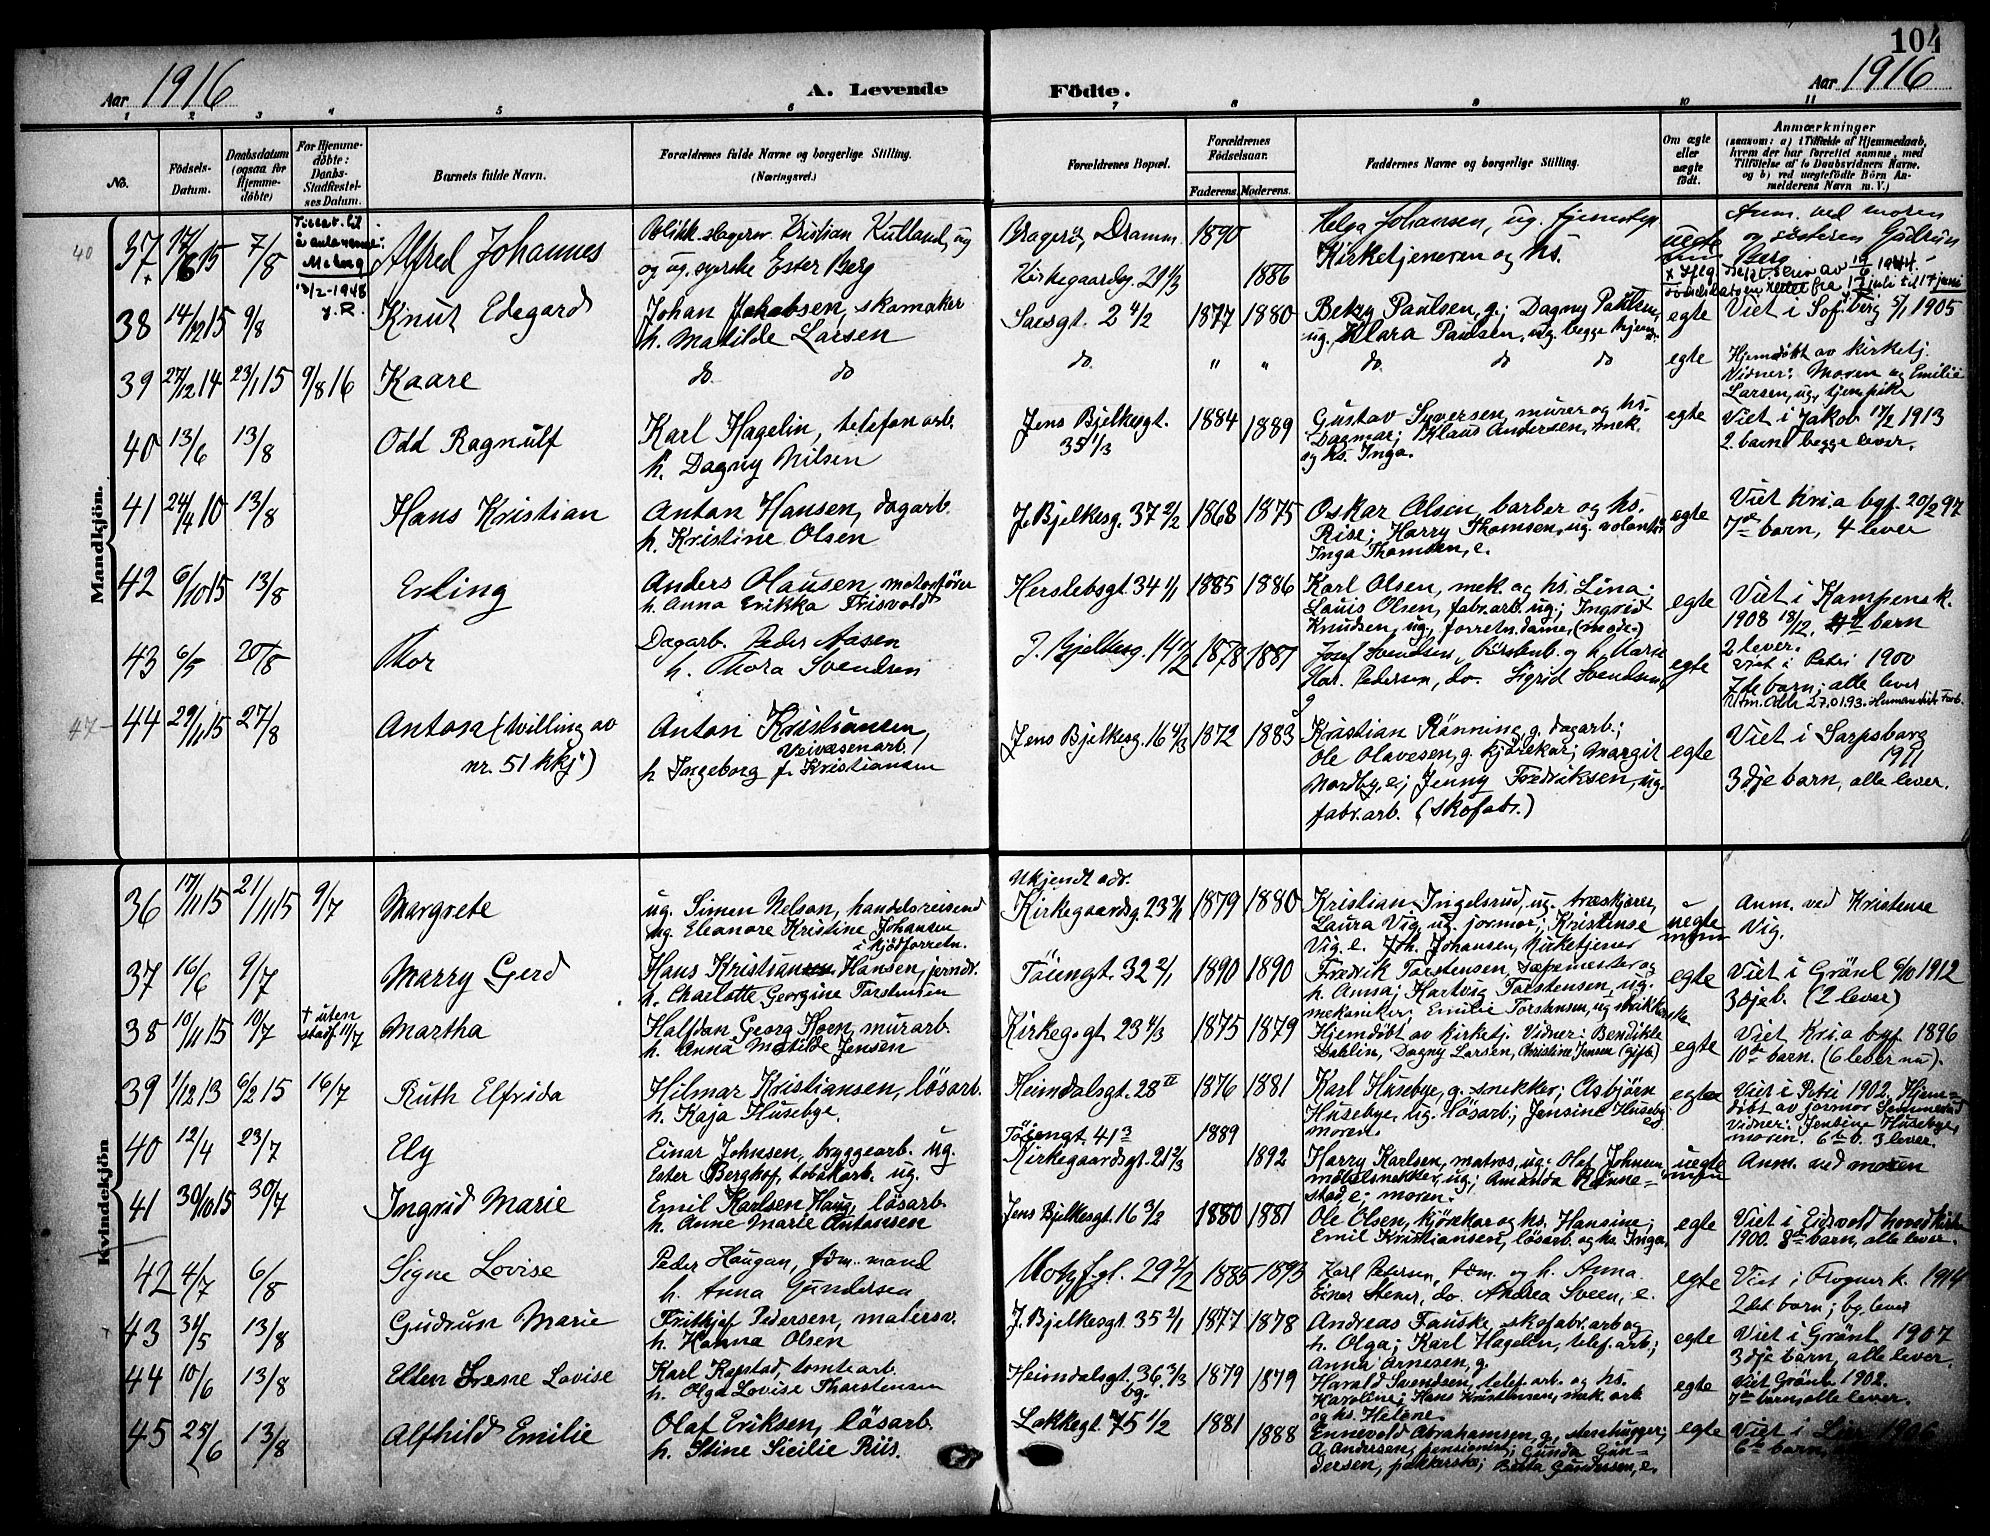 104
Aar 1916
A. Levende
Födte.
Aar 1916
1 2 3 4 5 6 7 8 9 10 11
No.
Födsels-
Datum.
Daabsdatum
(ogsaa for
Hjemme-
döbte)
For Hjemme-
döbte:
Daabs-
Stadfæstel-
ses Datum.
Barnets fulde Navn.
Forældrenes fulde Navne og borgerlige Stilling.
(Næringsvei.)
Forældrenes Bopæl.
Forældrenes
Födselsaar.
Faderens. Moderens.
Faddernes Navne og borgerlige Stilling.
Om ægte
eller
uægte
födt.
Anmærkninger
(saasom: a) i Tilfælde af Hjemmedaab,
hvem der har forrettet samme, med
Tilföielse af to Daabsvidners Navne.
og b) ved uægtefödte Börn An-
melderens Navn m. V.)
Mandkjön.
40
37 17/6 15 7/8
13/2-1948
Alfred Johannes
Kristian Rutland, ug
og ug. syerske Ester Berg
Bragerö, Dramm. 1890
Kirkegaardsg. 21 4/3 1886
Helga Johansen, ug.
Kirketjeneren og hs.
uegte
Anm. ved moren
og søsteren Gudrun
Berg
38 14/12 15 9/8
Knut Edegard
Johan Jakobsen, skomaker
h. Matilde Larsen
Saesgt. 2 4/2 1877 1880
Betzy Paulsen, g.; Dagny Paulsen,
ug. Klara Paulsen, ug. begge hjem.
egte
Viet i Sof.berg 5/1 1905
39 27/12 14 23/1 15 9/8 16
Kaare
do do
do " "
do do do
egte
Hjemdöbt av kirketj.
Vidner: Moren og Emilie
Larsen, ug., tjenepike
40 13/6 13/8
Odd Ragnulf
Karl Hagelin, telefonarb.
h. Dagny Nilsen
Jens Bjelkesgt.
35 1/3
1884 1889
Gustav Syversen, murer og hs.
Dagmar; Klaus Andersen, mek.
og hs. Inga.
egte
Viet i Jakob 17/2 1913
2. barn begge lever.
41 24/4 10 13/8
Hans Kristian
Anton Hansen, dagarb.
h. Kristine Olsen
J. Bjelkesg. 37 2/2 1868 1875
Oskar Olsen, barber og hs.
Rise; Harry Thomsen, ug.
Inga Thomsen, e.
egte
Viet Kri.a byf. 20/2 97
7de barn, 4 lever
42 6/10 15 13/8
Erling
Anders Olausen, motorförer
h. Anna Erikka Frisvold
Herslebsgt. 34 1/1 1885 1886
Karl Olsen, mek. og hs. Lina;
Louis Olsen, fabr.arb. ug; Ingrid
Knudsen, ug., forretn.dame, (mode-)
egte
Viet i Kampen k.
1908 18/12. barn
2 lever.
43 6/5 20/8
Thor
Dagarb. Peder Aasen
h. Thora Svendsen
J. Bjelkesg. 14 1/2 1878 1881
Josef Svendsen, og h. Marie
Har. Pedersen, do. Sigrid Svendsen,
g
egte
Viet i Petri 1900
7de barn; alle lever
Utm. Attr. 27.01.93. Humanetisk Forb.
47
44 29/11 15 27/8
Antora (tvilling av
nr. 51 kkj)
Anton Kristiansen,
Veivæsenarb.
h Ingeborg f. Kristiansen
Jens Bjelkesg. 16 4/3 1872 1883
Kristian Rönning, g. dagarb.;
Ole Olavesen, g. kjörekar; Margit
Nordby, e; Jenny Fredriksen, ug.
fabr.arb. (skofabr.)
egte
Viet i Sarpsborg
1911
3dje barn, alle lever.
Kvindekjön
36 17/11 15 21/11 15 9/7
Margrete
ug. Simen Nelson, handelsreisend
ug. Eleanore Kristine Johansen
i kjödforretn.
Ukjendt adr.
Kirkegaardsg. 23 4/1 1879 1880
Kristian Ingelsrud, ug. træskjærer,
Laura Vig, ug. jormor; Kristense
Vig, e. Joh. Johansen, kirketjener
uegte
Anm. ved Kristense
Vig.
37 16/6 9/7
Marry Gerd
Hans Kristian Hansen, jerndr.
h. Charlotte Georgine Torstensen
Töiengt. 32 2/1 1890 1890
Fredrik Torstensen, sæpemester og
h. Anna; Hartvig Torstensen, ug.
mekaniker; Emilie Torstensen, ug strikkerske
egte
Viet i Grönl. 6/10 1912
3dje b. (2 lever)
38 10/11 15 10/7 † uten
stadf. 11/7
Martha
Halfdan Georg Hoen, murarb.
h. Anna Matilde Jensen
Kirkeg.gt 23 4/3 1875 1879
Hjemdöbt av kirketj. Vidner: Bendikte
Dahlin, Dagny Larsen, Christine Jensen (gifte)
egte
Viet Kri.a byf. 1896
10de barn. (6 lever nu).
39 1/12 13 6/2 15 16/7
Ruth Elfrida
Hilmar Kristiansen, lösarb.
h. Kaja Husebye.
Heimdalsgt. 28 IV 1876 1881
Karl Husebye, g. snekker; Asbjörn
Husebye, ug. lösarb.; Jensine Husebye
moren.
egte
Viet i Petri 1902. Hjem-
döbt av jormor
Vidner: Jensine Husebye,
moren. 6te b. 3 lever.
40 12/4 23/7
Ely
Einar Johnsen, bryggearb. ug.
Ester Berghof, tobakarb. ug.
Töiengt. 41 3 1889
Kirkegaardsgt. 21 2/3 1892
Harry Karlsen, matros, ug. Olaf Johnsen,
möbelsnekker, ug; Amanda Rønne-
stad, e; moren.
uegte
Anm. ved moren
41 30/10 15 30/7
Ingrid Marie
Emil Karlsen Haug, lösarb.
h. Anne Marie Antonsen
Jens Bjelkesgt. 16 3/2 1880 1881
Ole Olsen, kjörekar og hs. Hansine;
Emil Kristiansen, lösarb. og hs. Inga.
egte
Viet i Eidsvold hovedkirke
1900. 8de barn, alle lever.
42 4/7 6/8
Signe Lovise
Peder Haugan, töm.mand
h. Anna Gundersen
Motzfgt. 29 2/2 1885 1893
Karl Petersen, töm. og h. Anna.
Einar Stener, do. Andrea Sveen, e.
egte
Viet i Frogner k. 1914
2det barn; bg. lever
43 31/5 13/8
Gudrun Marie
Frithjof Pedersen, malersv.
h. Hanna Olsen
J. Bjelkesgt. 35 2/1 1877 1878
Andreas Fauske, skofabr.arb og
h. Olga; Karl Hagelin, telef.arb;
Anna Arnesen, g.
egte
Viet i Grönl 1907
3dje barn, alle lever.
44 10/6 13/8
Ellen Irene Lovise
Karl Kopstad, tomtearb.
h. Olga Lovise Thorstensen
Heimdalsgt. 36 3/3
bg.
1879 1879
Harald Svendsen, telef.arb. og hs.
Karoline; Hans Kristensen, mek. arb
og hs. Helene.
egte
Viet Grönl. 1902.
7de barn, alle lever.
45 25/6 13/8
Alfhild Emilie
Olaf Eriksen, lösarb.
h. Stine Sicilie Riis.
Lakkegt. 75 1/2 1881 1888
Ennevold Abrahamsen, g, stenhugger;
A. Andersen, pensionist; Gunda Gun-
dersen, pakkerske; Berta Gundersen, e.
egte
Viet i 1906
6te barn,